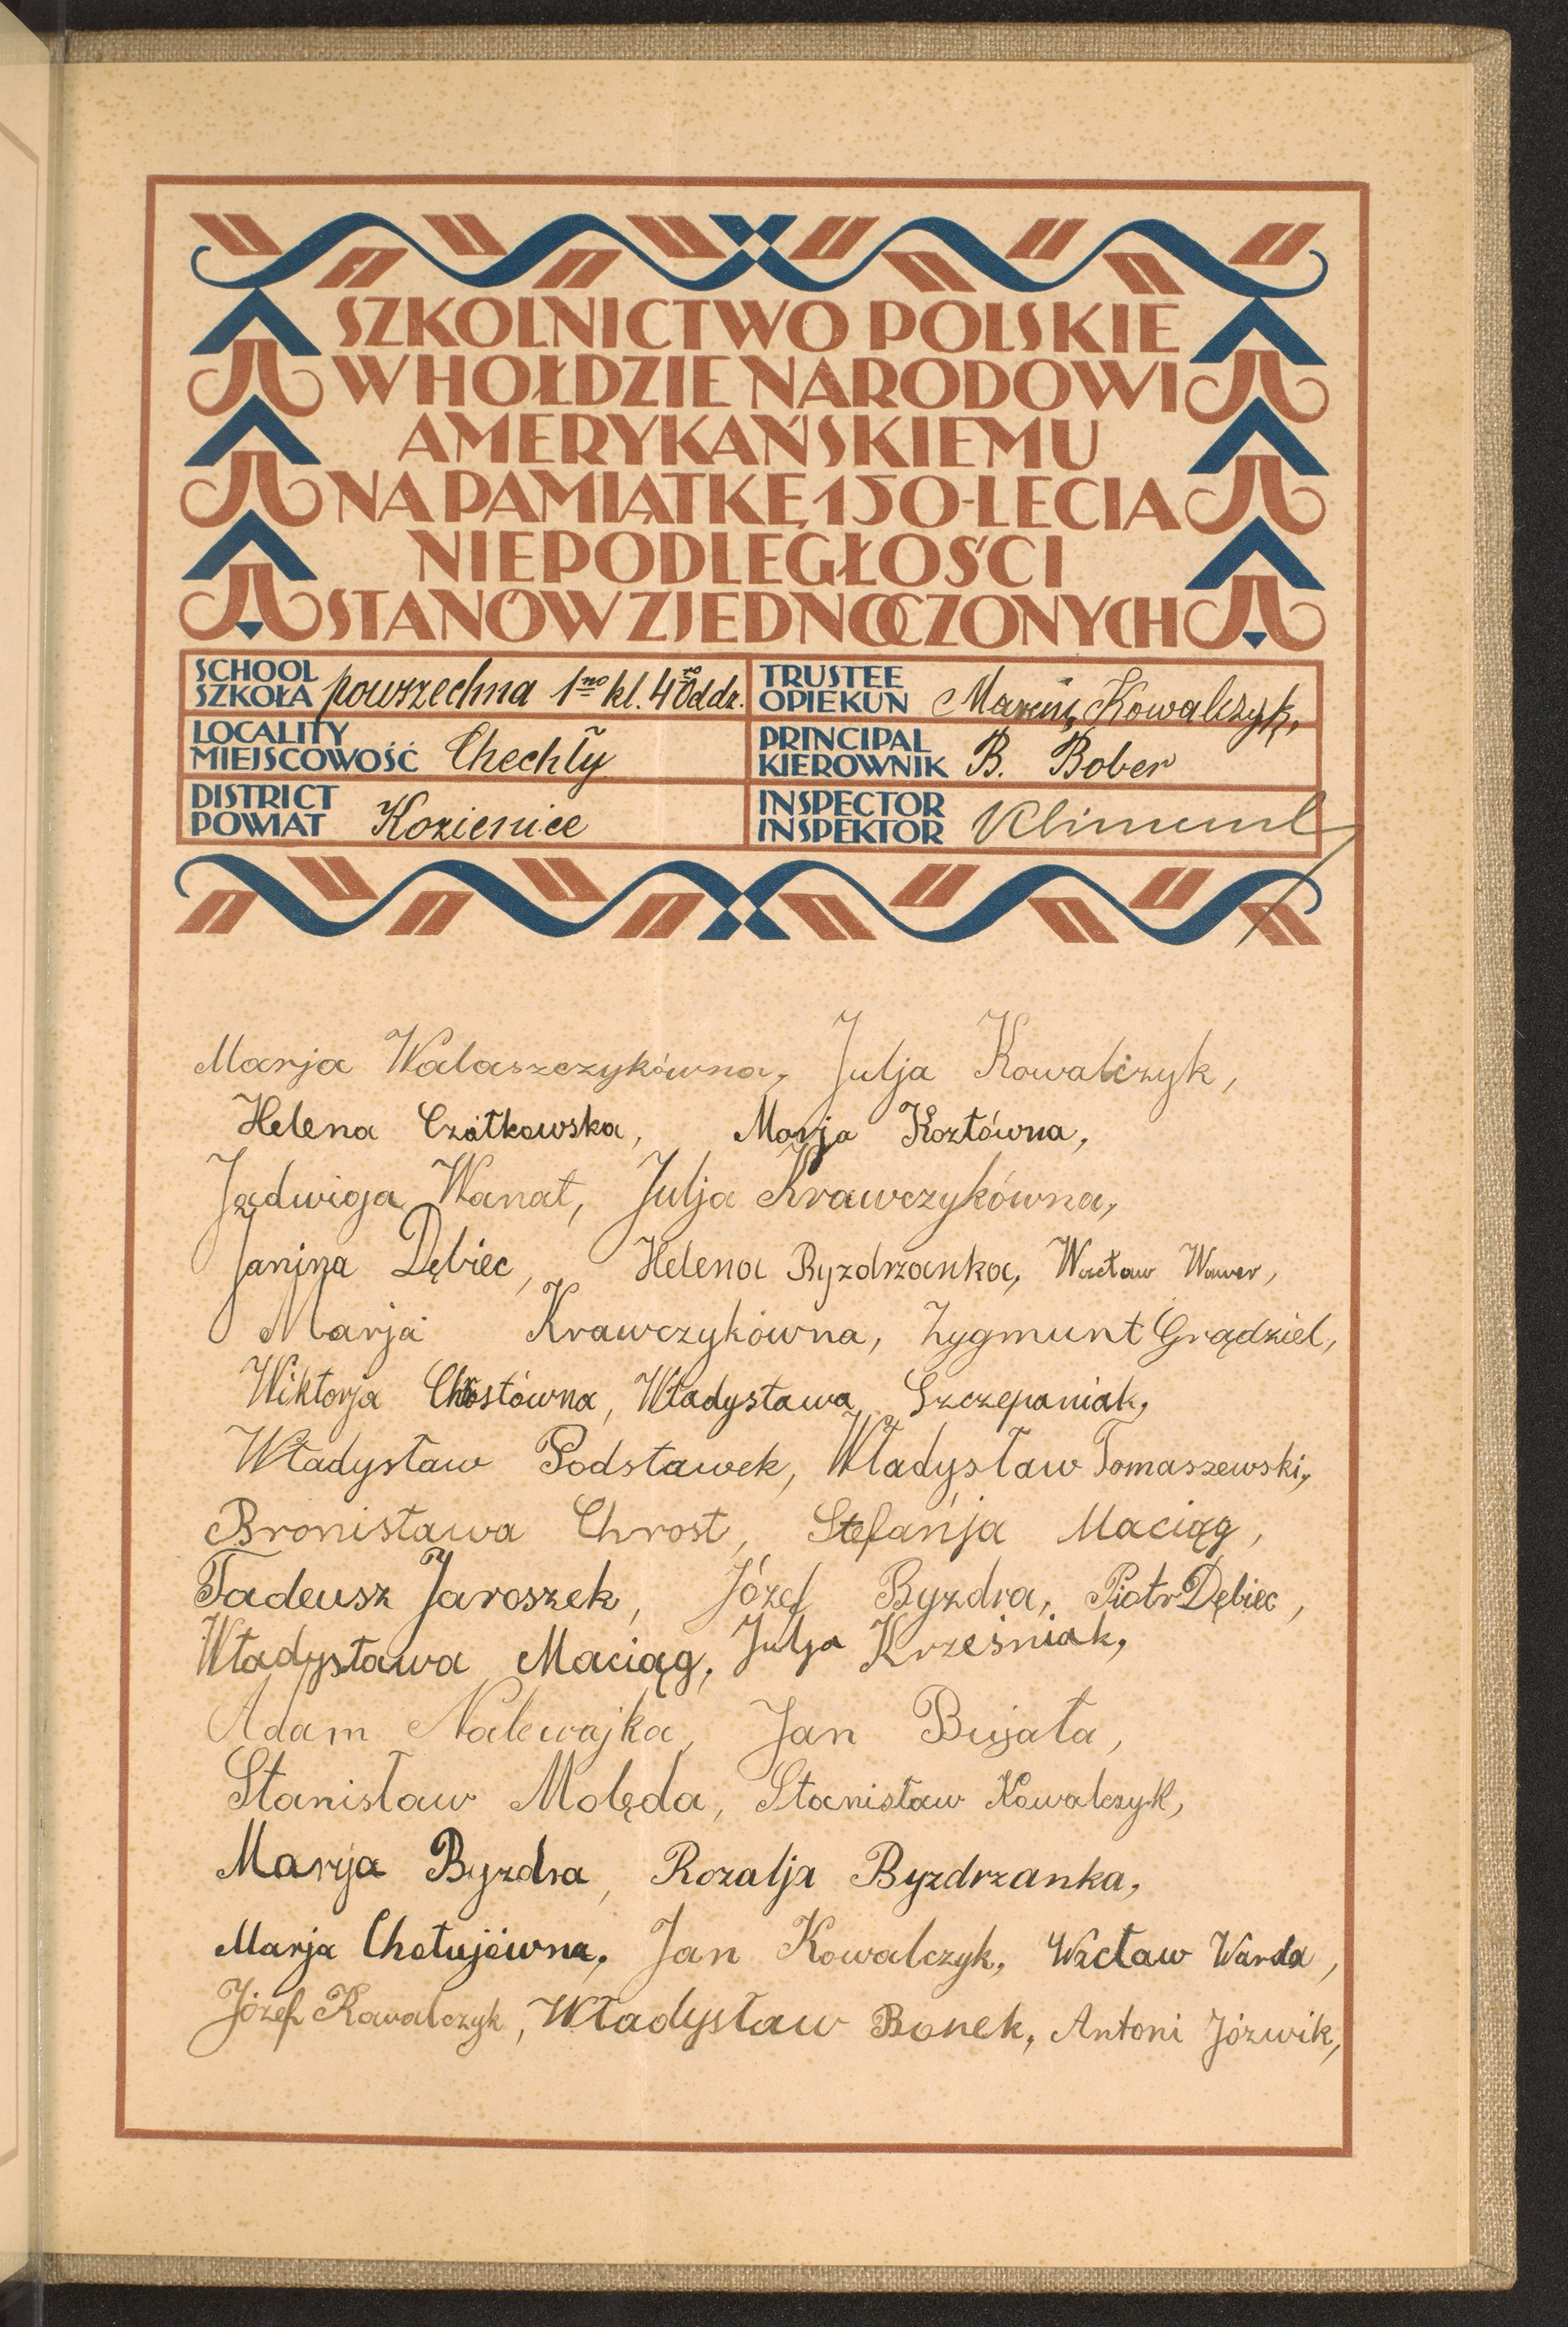 SZKOLNICTWO POLSKIE
W HOŁDZIE NARODOWI
AMERYKAŃSKIEMU
NA PAMIĄTKĘ 150-LECIA
NIEPODLEGŁOŚCI
STANÓW ZJEDNOCZONYCH
SCHOOL
SZKOŁA powszechna 1no kl. 4ro Oddz.
TRUSTEE
OPIEKUN Marcin Kowalczyk,
LOCALITY
MIEJSCOWOŚĆ Chechły
PRINCIPAL
KIEROWNIK B. Bober
DISTRICT
POWIAT Kozienice
INSPECTOR
INSPEKTOR
Marja Walaszczykówna, Julja Kowalczyk,
Helena Czatkowska, Marja Kozłówna,
Jadwiga Wanat, Julja Krawczykówna,
Janina Dębiec, Helena Byzdrzanka, Wacław Wawer,
Marja Krawczykówna, Zygmunt Grądziel,
Wiktorja Chrostówna, Władysława Szczepaniak,
Władysław Podstawek, Władysław Tomaszewski,
Bronisława Chrost, Stefanja Maciąg,
Tadeusz Jaroszek, Józef Byzdra, Piotr Dębiec,
Władysława Maciąg, Julja Krześniak,
Adam Nalewajka, Jan Bujała,
Stanisław Molęda, Stanisław Kowalczyk,
Marja Byzdra, Rozalja Byzdrzanka,
Marja Chołujówna, Jan Kowalczyk, Wacław Warda,
Józef Kowalczyk, Władysław Bonek, Antoni Józwik,